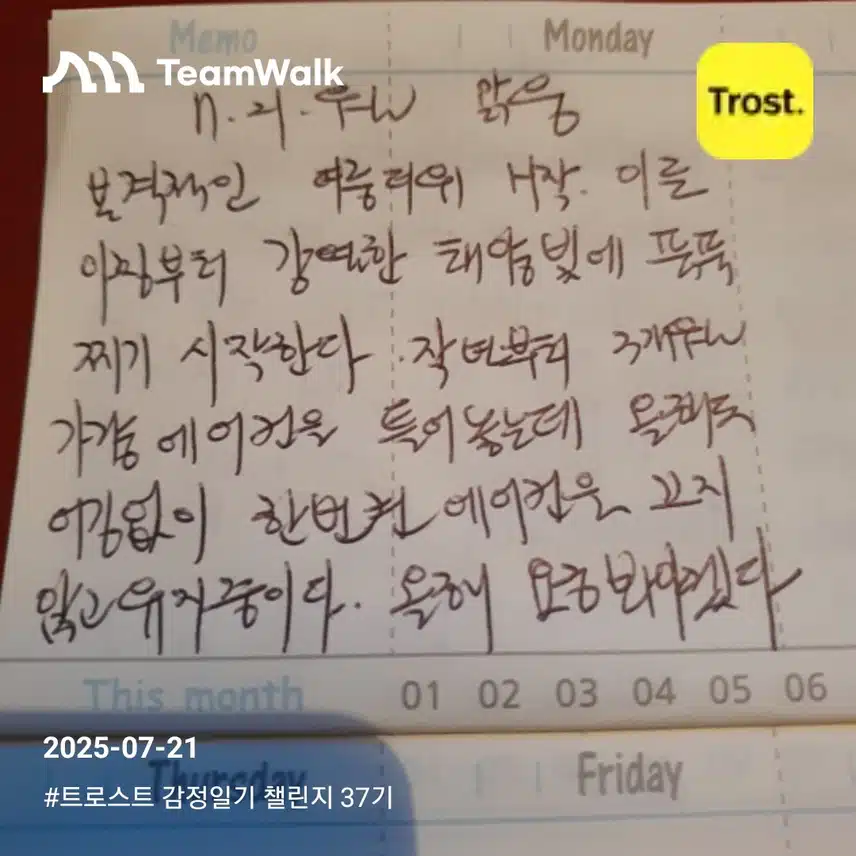 Memo Monday
TeamWalk
Trost.
7. 21. 월 맑음
본격적인 여름더위 시작. 이른
아침부터 강렬한 태양빛에 푹푹
찌기 시작한다. 작년부터 3개월
가량 에어컨을 틀어놓는데 올해도
어김없이 한번켠 에어컨을 끄지
않고 유지중이다. 올해
This month 01 02 03 04 05 06
2025-07-21
Thursday Friday
#트로스트 감정일기 챌린지 37기